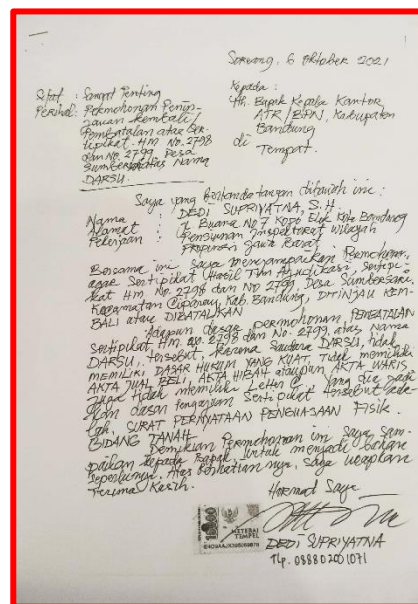 Soreang, 6 Oktober 2021
Sifat : Sangat Penting
Perihal: Permohonan Penin-
jauan kembali/
Pembatalan atas Ser-
tipikat HM No. 2798
dan No. 2799, Desa
Sumbersari Atas Nama
DARSU.
Kepada :
Yth. Bapak Kepala Kantor
ATR/BPN, Kabupaten
Bandung
di
Tempat.
Saya yang bertanda tangan dibawah ini :
Nama : DEDI SUPRIYATNA, S.H.
Alamat : Jl Buana No. 7 Kopo Elok Kota Bandung
Pekerjaan : Pensiunan Inspektorat Wilayah
Propinsi Jawa Barat
Bersama ini saya menyampaikan Permohonan,
agar Sertipikat (Hasil Tim Ajudifikasi, Sertipi-
kat HM No. 2798 dan No 2799, Desa Sumbersari,
Kecamatan Ciparay, Kab. Bandung, DITINJAU KEM-
BALI atau DIBATALKAN
Adapun dasar permohonan, PEMBATALAN
Sertipikat, Hm. no. 2798 dan No. 2799, atas Nama
DARSU, tersebut, karena Saudara DARSU, tidak
MEMILIKI DASAR HUKUM YANG KUAT, Tidak memiliki
AKTA JUAL BELI, AKTA HIBAH ataupun AKTA WARIS
Juga tidak memiliki Letter C yang dia jadi
kan dasar pengajuan Sertipikat tersebut ada-
lah, SURAT PERNYATAAN PENGUASAAN FISIK.
BIDANG TANAH
Demikian Permohonan ini Saya Sam-
paikan kepada Bapak, untuk menjadi bahan
seperlunya. Atas Perhatian nya, Saya ucapkan
Terima Kasih.
Hormat Saya
10000
METERAI
TEMPEL
DEDI SUPRIYATNA
Tlp. 088802001071